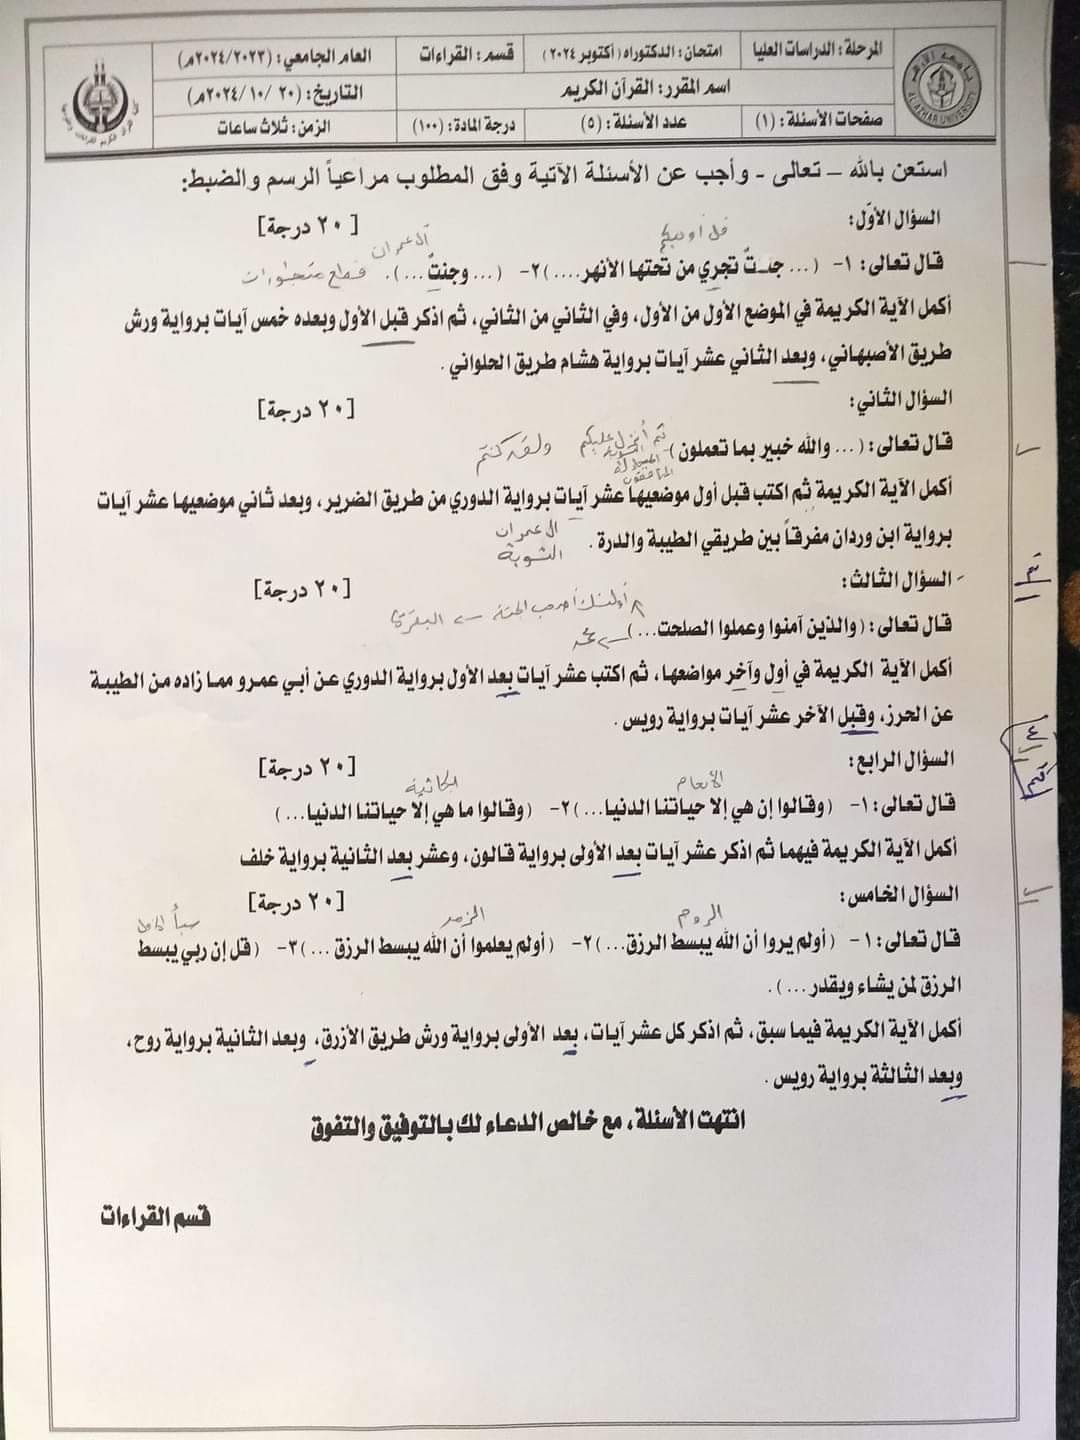 المرحلة: الدراسات العليا
امتحان: الدكتوراه (أكتوبر ٢٠٢٤)
قسم: القراءات
العام الجامعي: (٢٠٢٤/٢٠٢٣م)
اسم المقرر: القرآن الكريم
التاريخ: (٢٠ /٢٠٢٤/١٠م)
صفحات الأسئلة: (١)
عدد الأسئلة: (٥)
درجة المادة: (١٠٠)
الزمن: ثلاث ساعات
AL AZHAR UNIVERSITY
استعن بالله – تعالى - وأجب عن الأسئلة الآتية وفق المطلوب مراعياً الرسم والضبط:
السؤال الأول: [ ٢٠ درجة]
قل أؤنبئكم
آل عمران
قال تعالى: ١- (... جنـتٌ تجري من تحتها الأنهر....) ٢- (... وجنتٌ ...). قطع متجورات
أكمل الآية الكريمة في الموضع الأول من الأول، وفي الثاني من الثاني، ثم اذكر قبل الأول وبعده خمس آيات برواية ورش
طريق الأصبهاني، وبعد الثاني عشر آيات برواية هشام طريق الحلواني .
السؤال الثاني: [٢٠ درجة]
قال تعالى: (... والله خبير بما تعملون)- ثم أنزل عليكم ولقد كنتم
التوبة
المجادلة
المنافقون
أكمل الآية الكريمة ثم اكتب قبل أول موضعيها عشر آيات برواية الدوري من طريق الضرير، وبعد ثاني موضعيها عشر آيات
برواية ابن وردان مفرقاً بين طريقي الطيبة والدرة . ال عمران
التوبة
- السؤال الثالث: [٢٠ درجة]
أولئك أصحب الجنة البقرة
قال تعالى: (والذين آمنوا وعملوا الصلحت...) محمد
أكمل الآية الكريمة في أول وآخر مواضعها، ثم اكتب عشر آيات بعد الأول برواية الدوري عن أبي عمرو مما زاده من الطيبة
عن الحرز، وقبل الآخر عشر آيات برواية رويس .
السؤال الرابع: [٢٠ درجة]
الأنعام الجاثية
قال تعالى: ١- (وقالوا إن هي إلا حياتنا الدنيا...) ٢- (وقالوا ما هي إلا حياتنا الدنيا...)
أكمل الآية الكريمة فيهما ثم اذكر عشر آيات بعد الأولى برواية قالون، وعشر بعد الثانية برواية خلف
السؤال الخامس: [٢٠ درجة]
الروم الزمر سبأ الأول
قال تعالى: ١- (أولم يروا أن الله يبسط الرزق...) ٢- (أولم يعلموا أن الله يبسط الرزق ...) ٣- (قل إن ربي يبسط
الرزق لمن يشاء ويقدر...).
أكمل الآية الكريمة فيما سبق، ثم اذكر كل عشر آيات، بعد الأولى برواية ورش طريق الأزرق، وبعد الثانية برواية روح،
وبعد الثالثة برواية رويس .
انتهت الأسئلة، مع خالص الدعاء لك بالتوفيق والتفوق
قسم القراءات